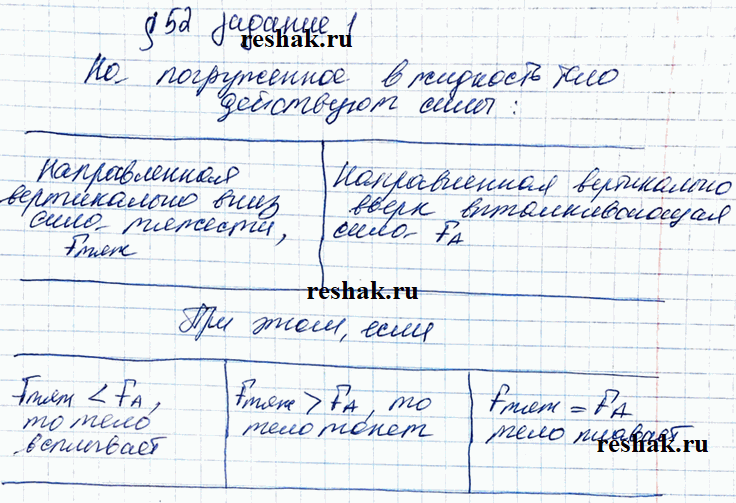 § 52 задание 1
reshak.ru
На погруженное в жидкость тело
действуют силы:
Направленная
вертикально вниз
сила тяжести,
Fтяж
Направленная вертикально
вверх выталкивающая
сила FА
reshak.ru
При этом, если
Fтяж < FА,
то тело
всплывает
Fтяж > FА, то
тело тонет
Fтяж = FА
тело плавает
reshak.ru